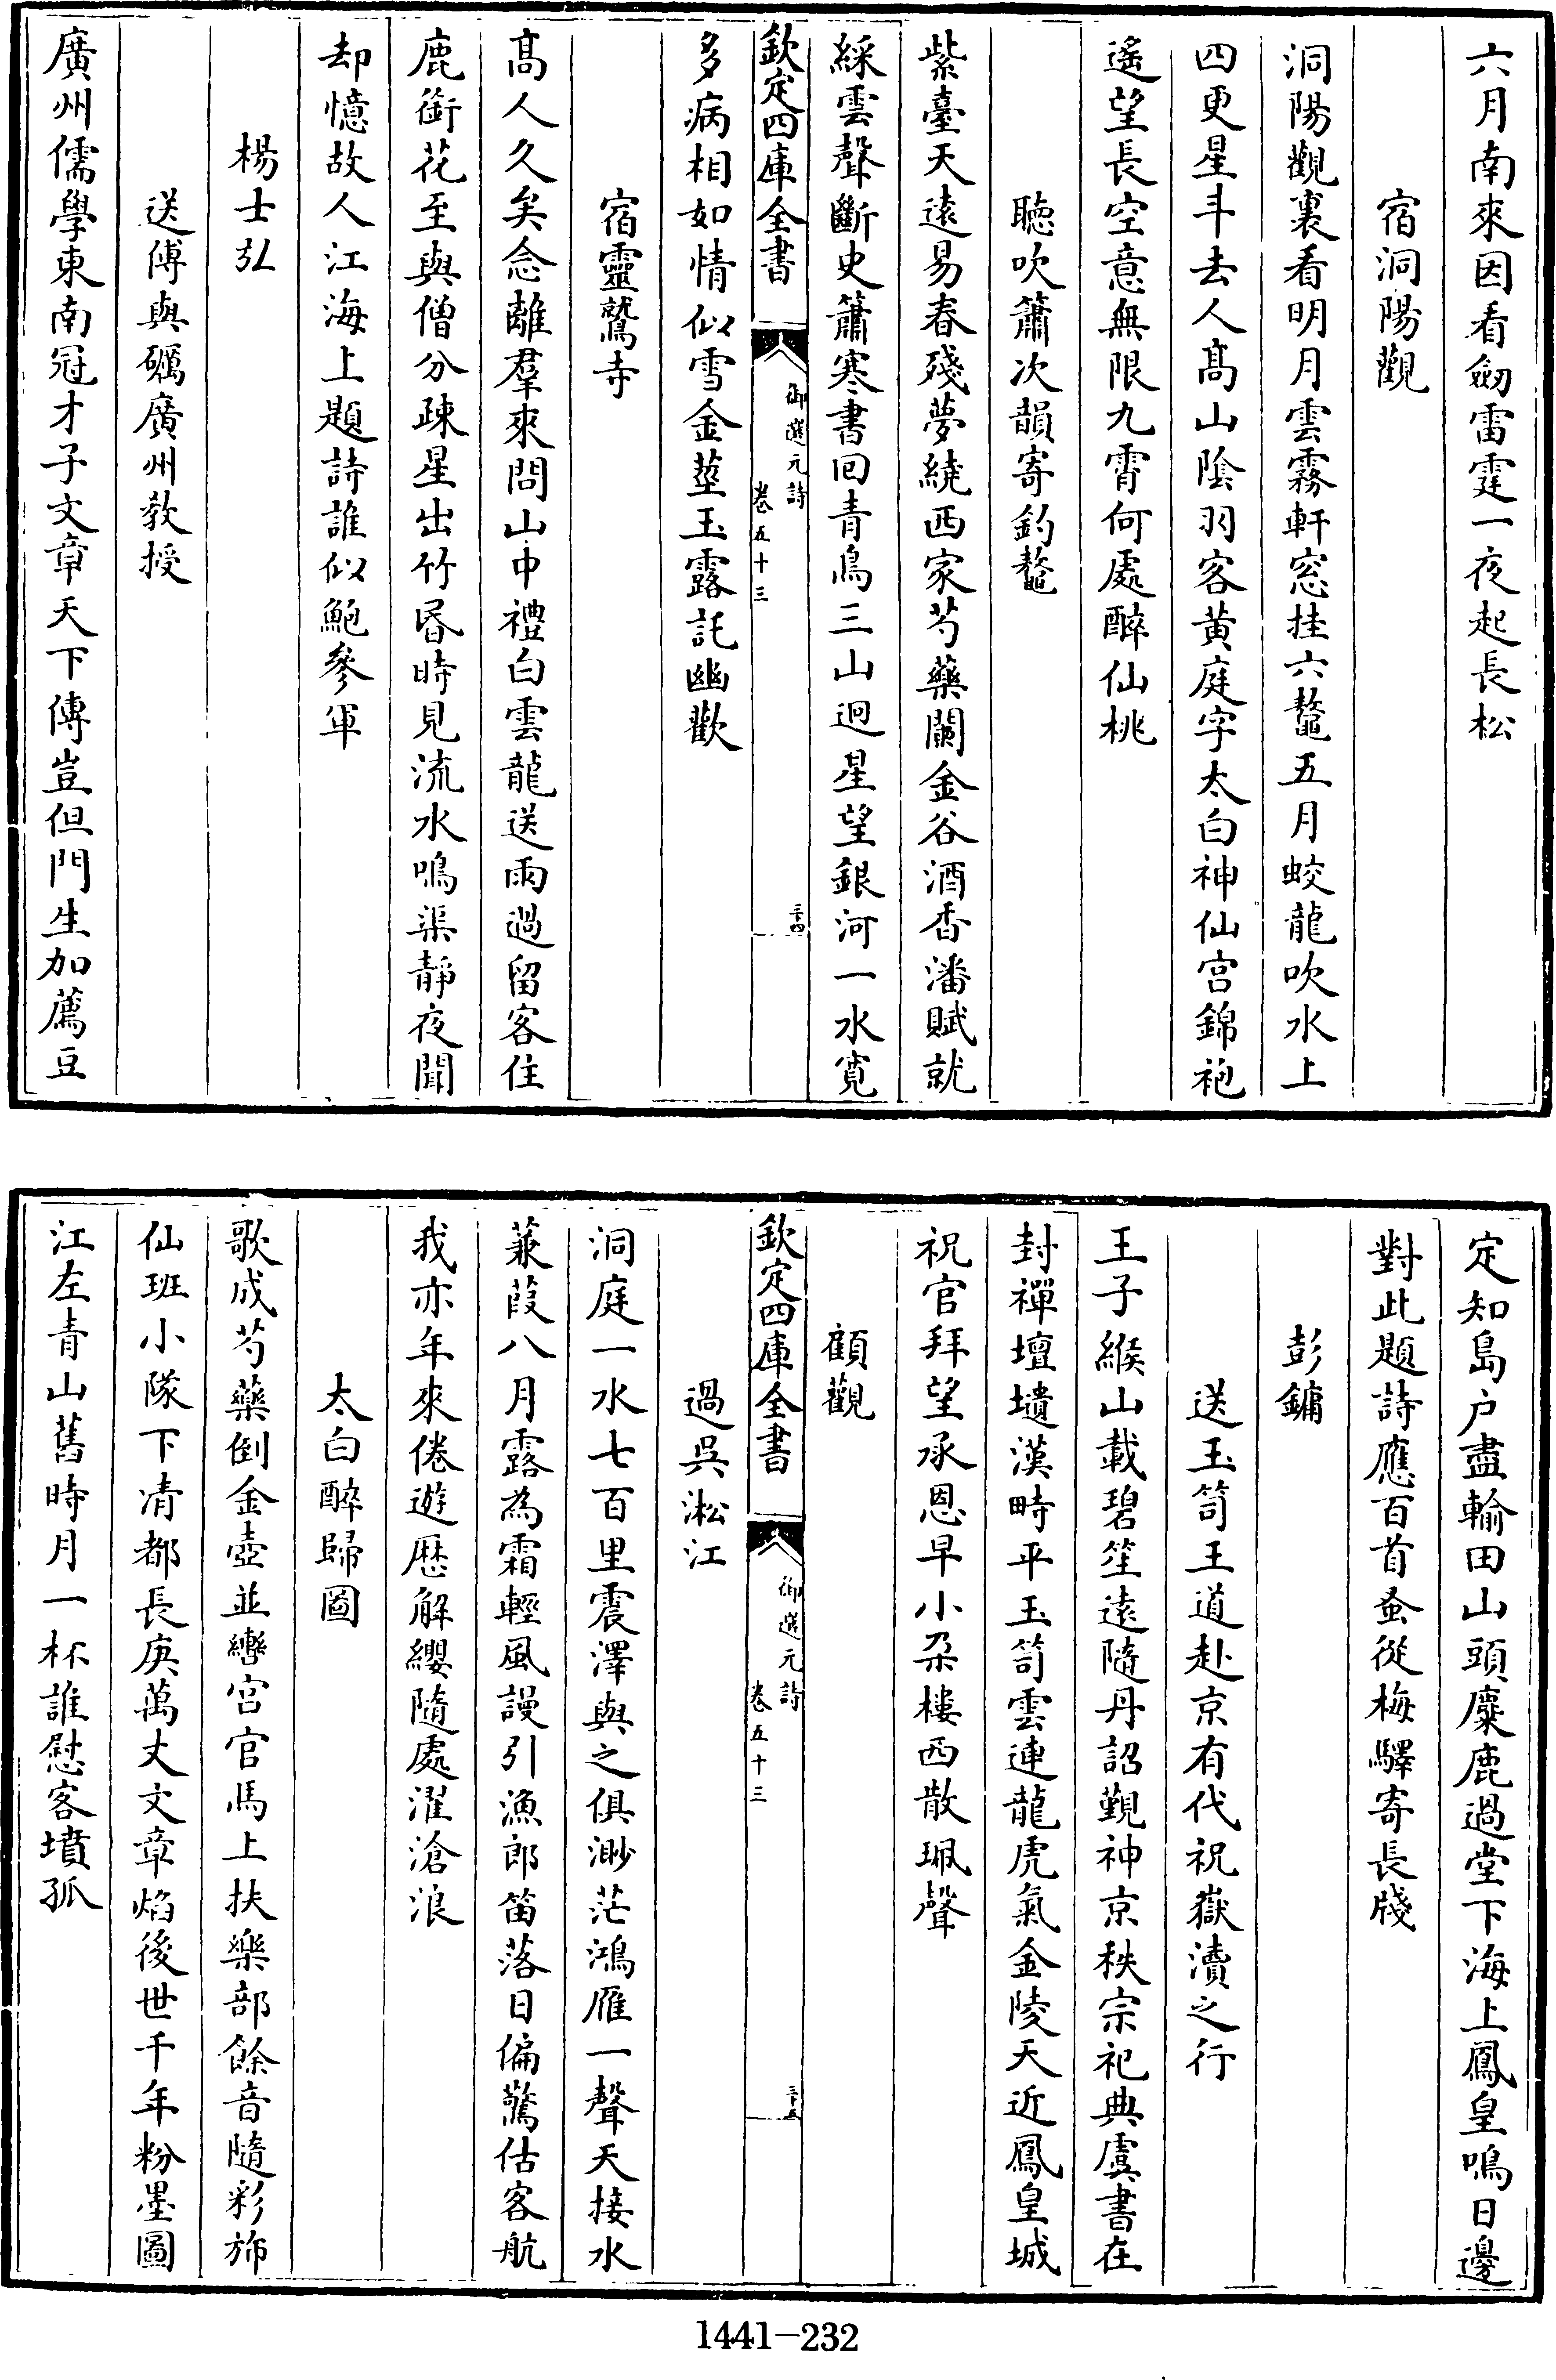 六月南來因看劒雷霆一夜起長松
宿洞陽觀
洞陽觀裏看明月雲霧軒窓挂六鼇五月蛟龍吹水上
四更星斗去人髙山陰羽客黄庭字太白神仙宫錦袍
遙望長空意無限九霄何處醉仙桃
聽吹簫次韻寄釣鼇
紫臺天遠易春殘夢繞西家芍藥闌金谷酒香潘賦就
綵雲聲斷史簫寒書回青鳥三山迥星望銀河一水寛
欽定四庫全書
御選元詩
卷五十三
三十四
多病相如情似雪金莖玉露託幽歡
宿靈鷲寺
髙人久矣念離羣來問山中禮白雲龍送雨過留客住
鹿銜花至與僧分疎星出竹昏時見流水鳴渠靜夜聞
却憶故人江海上題詩誰似鮑參軍
楊士弘
送傅與礪廣州教授
廣州儒學東南冠才子文章天下傳豈但門生加薦豆
定知島户盡輸田山頭麋鹿過堂下海上鳳皇鳴日邊
對此題詩應百首蚤從梅驛寄長牋
彭鏞
送玉笥王道赴京有代祝嶽瀆之行
王子緱山載碧笙遠隨丹詔覲神京秩宗祀典虞書在
封禪壇壝漢畤平玉笥雲連龍虎氣金陵天近鳳皇城
祝官拜望承恩早小朶樓西散珮聲
顧觀
欽定四庫全書
御選元詩
卷五十三
三十五
過吳淞江
洞庭一水七百里震澤與之俱渺茫鴻雁一聲天接水
蒹葭八月露為霜輕風謾引漁郎笛落日偏驚估客航
我亦年來倦遊歷解纓隨處濯滄浪
太白醉歸圖
歌成芍藥倒金壺並轡宫官馬上扶樂部餘音隨彩斾
仙班小隊下清都長庚萬丈文章焰後世千年粉墨圖
江左青山舊時月一杯誰慰客墳孤
1441-232